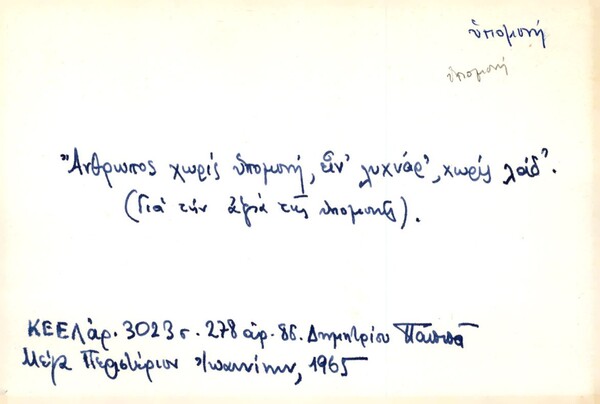 ὑπομονή
ὑπομονή
Ἄνθρωπος χωρίς ὑπομονή, εἶν' λυχνάρ', χωρίς λάδ'.
(Γιά τήν ἀξιά τῆς ὑπομονῆς).
ΚΕΕΛ ἀρ. 3023 σ. 278 ἀρ. 86. Δημητρίου Παππᾶ
Μέγα Περιστέριον Ἰωαννίνων, 1965